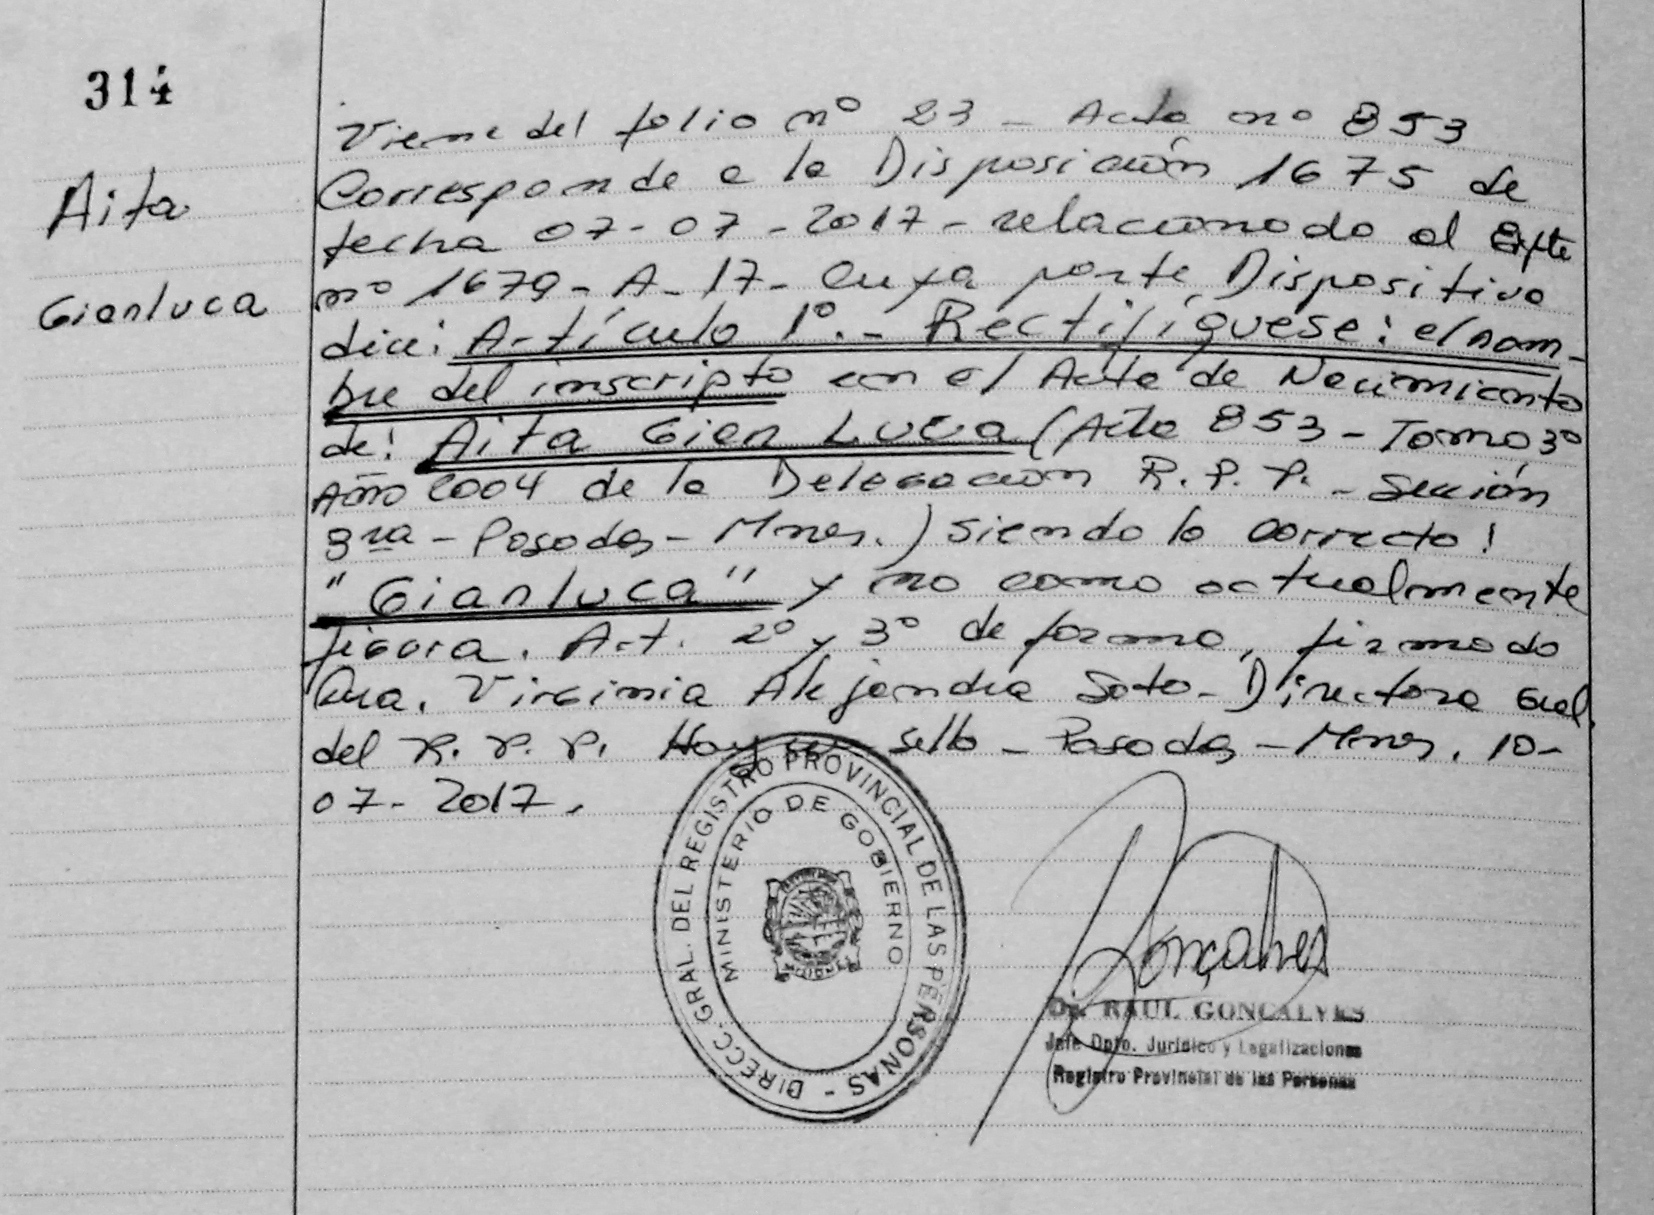 314
Aita
Gianluca
Viene del folio nº 23 - Acta nº 853
Corresponde a la Disposición 1675 de
fecha 07-07-2017- relacionado al Expte
nº 1679-A-17- Cuya parte Dispositiva
dice: Artículo 1º.- Rectifíquese: el nom-
bre del inscripto en el Acta de Nacimiento
de: Aita Gian Luca (Acta 853 - Tomo 3º
Año 2004 de la Delegación R.P.P. - Sección
3ra - Posadas - Mnes.) siendo lo correcto:
"Gianluca" y no como actualmente
figura. Art. 2º y 3º de forma, firmado
Dra. Virginia Alejandra Soto - Directora Gral.
del R.P.P. Hay un sello - Posadas - Mnes. 10-
07-2017.
DIRECC. GRAL. DEL REGISTRO PROVINCIAL DE LAS PERSONAS -
MINISTERIO DE GOBIERNO
MISIONES
Gonçalves
Dr. RAUL GONCALVES
Jefe Dpto. Jurídico y Legalizaciones
Registro Provincial de las Personas